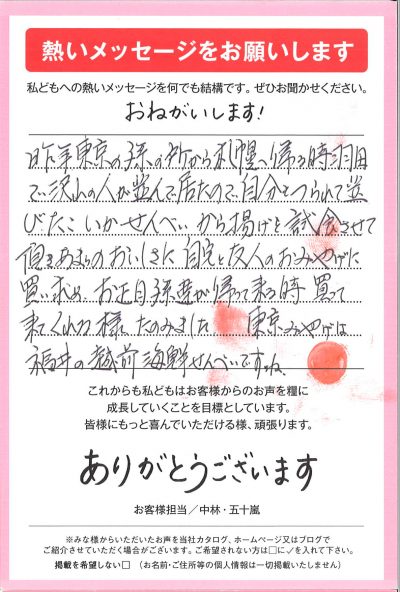 熱いメッセージをお願いします
私どもへの熱いメッセージを何でも結構です。ぜひお聞かせください。
おねがいします!
昨年東京の孫の所から札幌へ帰る時羽田
で沢山の人が並んで居たので自分もつられて並
びたこいかせんべいから揚げを試食させて
頂きあまりのおいしさに自宅と友人のおみやげに
買い求め、お正月孫達が帰って来る時買って
来てくれる様たのみました 東京みやげは
福井の越前海鮮せんべいですね。
これからも私どもはお客様からのお声を糧に
成長していくことを目標としています。
皆様にもっと喜んでいただける様、頑張ります。
ありがとうございます
お客様担当/中林・五十嵐
※みな様からいただいたお声を当社カタログ、ホームページ又はブログで
ご紹介させていただく場合がございます。ご希望されない方は□に✓を入れて下さい。
掲載を希望しない□ (お名前・ご住所等の個人情報は一切掲載いたしません)